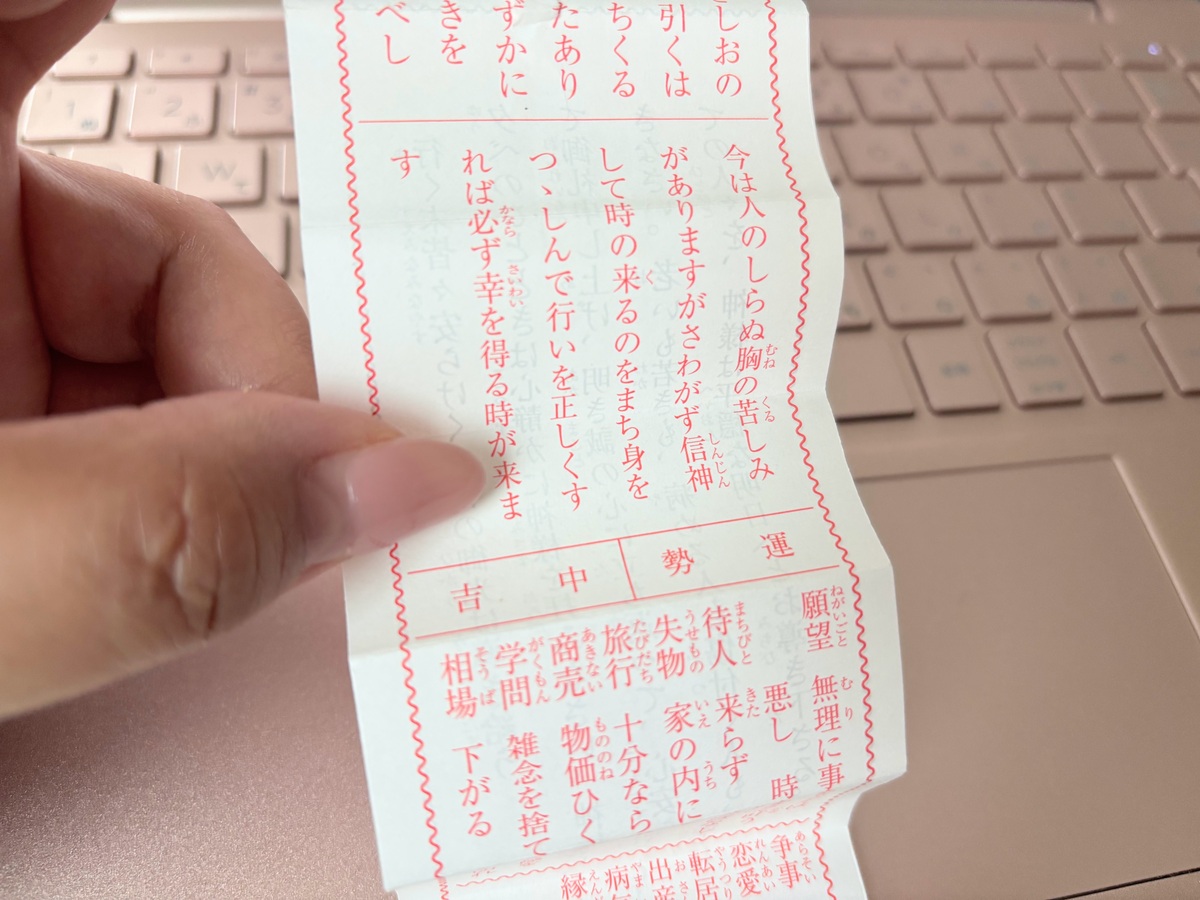 しおの
引くは
ちくる
たあり
ずかに
きを
べし
今は人のしらぬ胸の苦しみ
がありますがさわがず信神
して時の来るのをまち身を
つゝしんで行いを正しくす
れば必ず幸を得る時が来ま
す
運勢
中吉
願望 無理に事
悪し 時
待人 来らず
失物 家の内に
旅行 十分なら
商売 物価ひく
学問 雑念を捨て
相場 下がる
争事
恋愛
転居
出産
病
縁